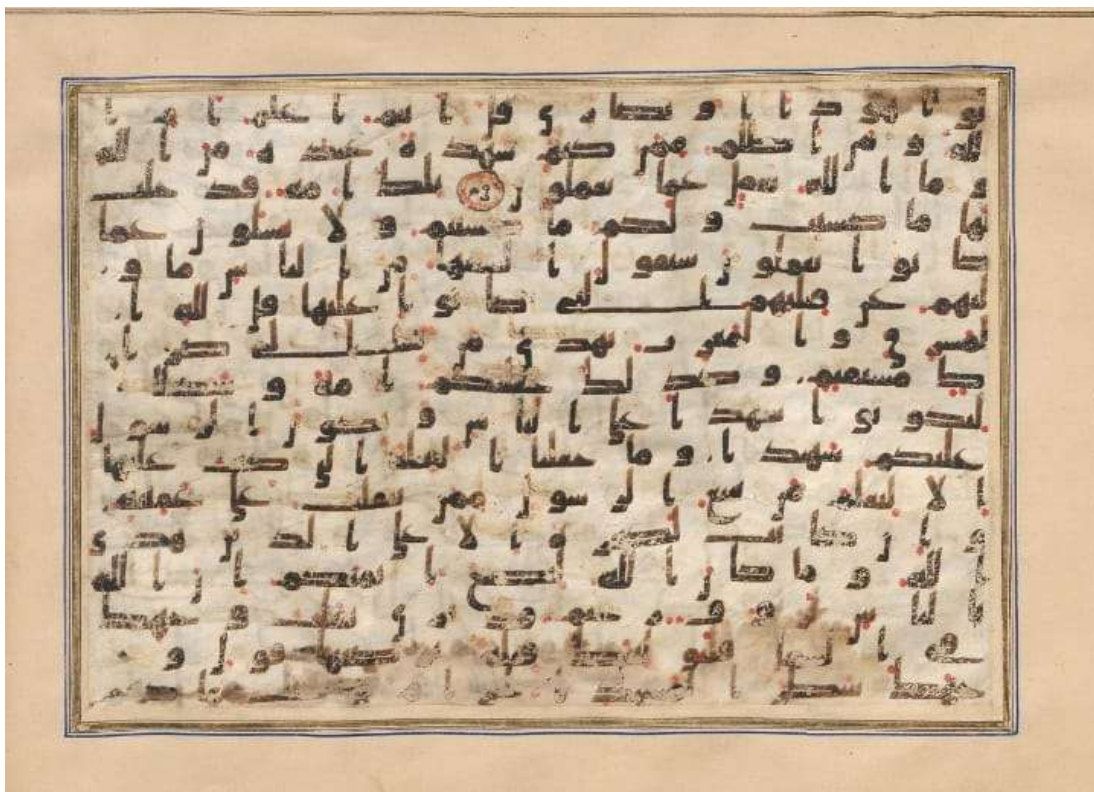 نوا هودا او نصارى قل اانتم اعلم ام ا
لله و من اظلم ممن كتم شهدة عنده من الله
و ما الله بغفل عما تعملون تلك امة قد خلت
لها ما كسبت و لكم ما كسبتم و لا تسلون عما
كانوا يعملون سيقول السفها من الناس ما و
ليهم عن قبلتهم التي كانوا عليها قل لله ا
لمشرق و المغرب يهدي من يشا الى صرا
ط مستقيم و كذلك جعلنكم امة وسطا
لتكونوا شهدا على الناس و يكون الرسول
عليكم شهيدا و ما جعلنا القبلة التي كنت عليها
الا لنعلم من يتبع الرسول ممن ينقلب على عقبيه
و ان كانت لكبيرة الا على الذين هدى
الله و ما كان الله ليضيع ايمنكم ان الله
بالناس لروف رحيم قد نرى تقلب وجهك
في السما فلنولينك قبلة ترضيها فول و
جهك شطر المسجد الحرام و حيث ما كنتم